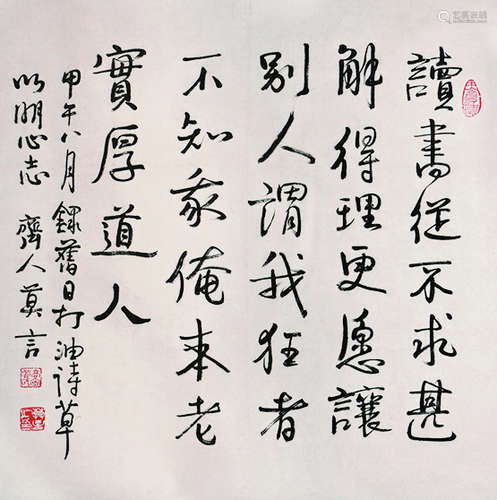 讀書從不求甚
解得理更讓
别人謂我狂者
不知我俺本老
實厚道人
甲午八月錄舊日打油詩草
以明心志 齊人莫言